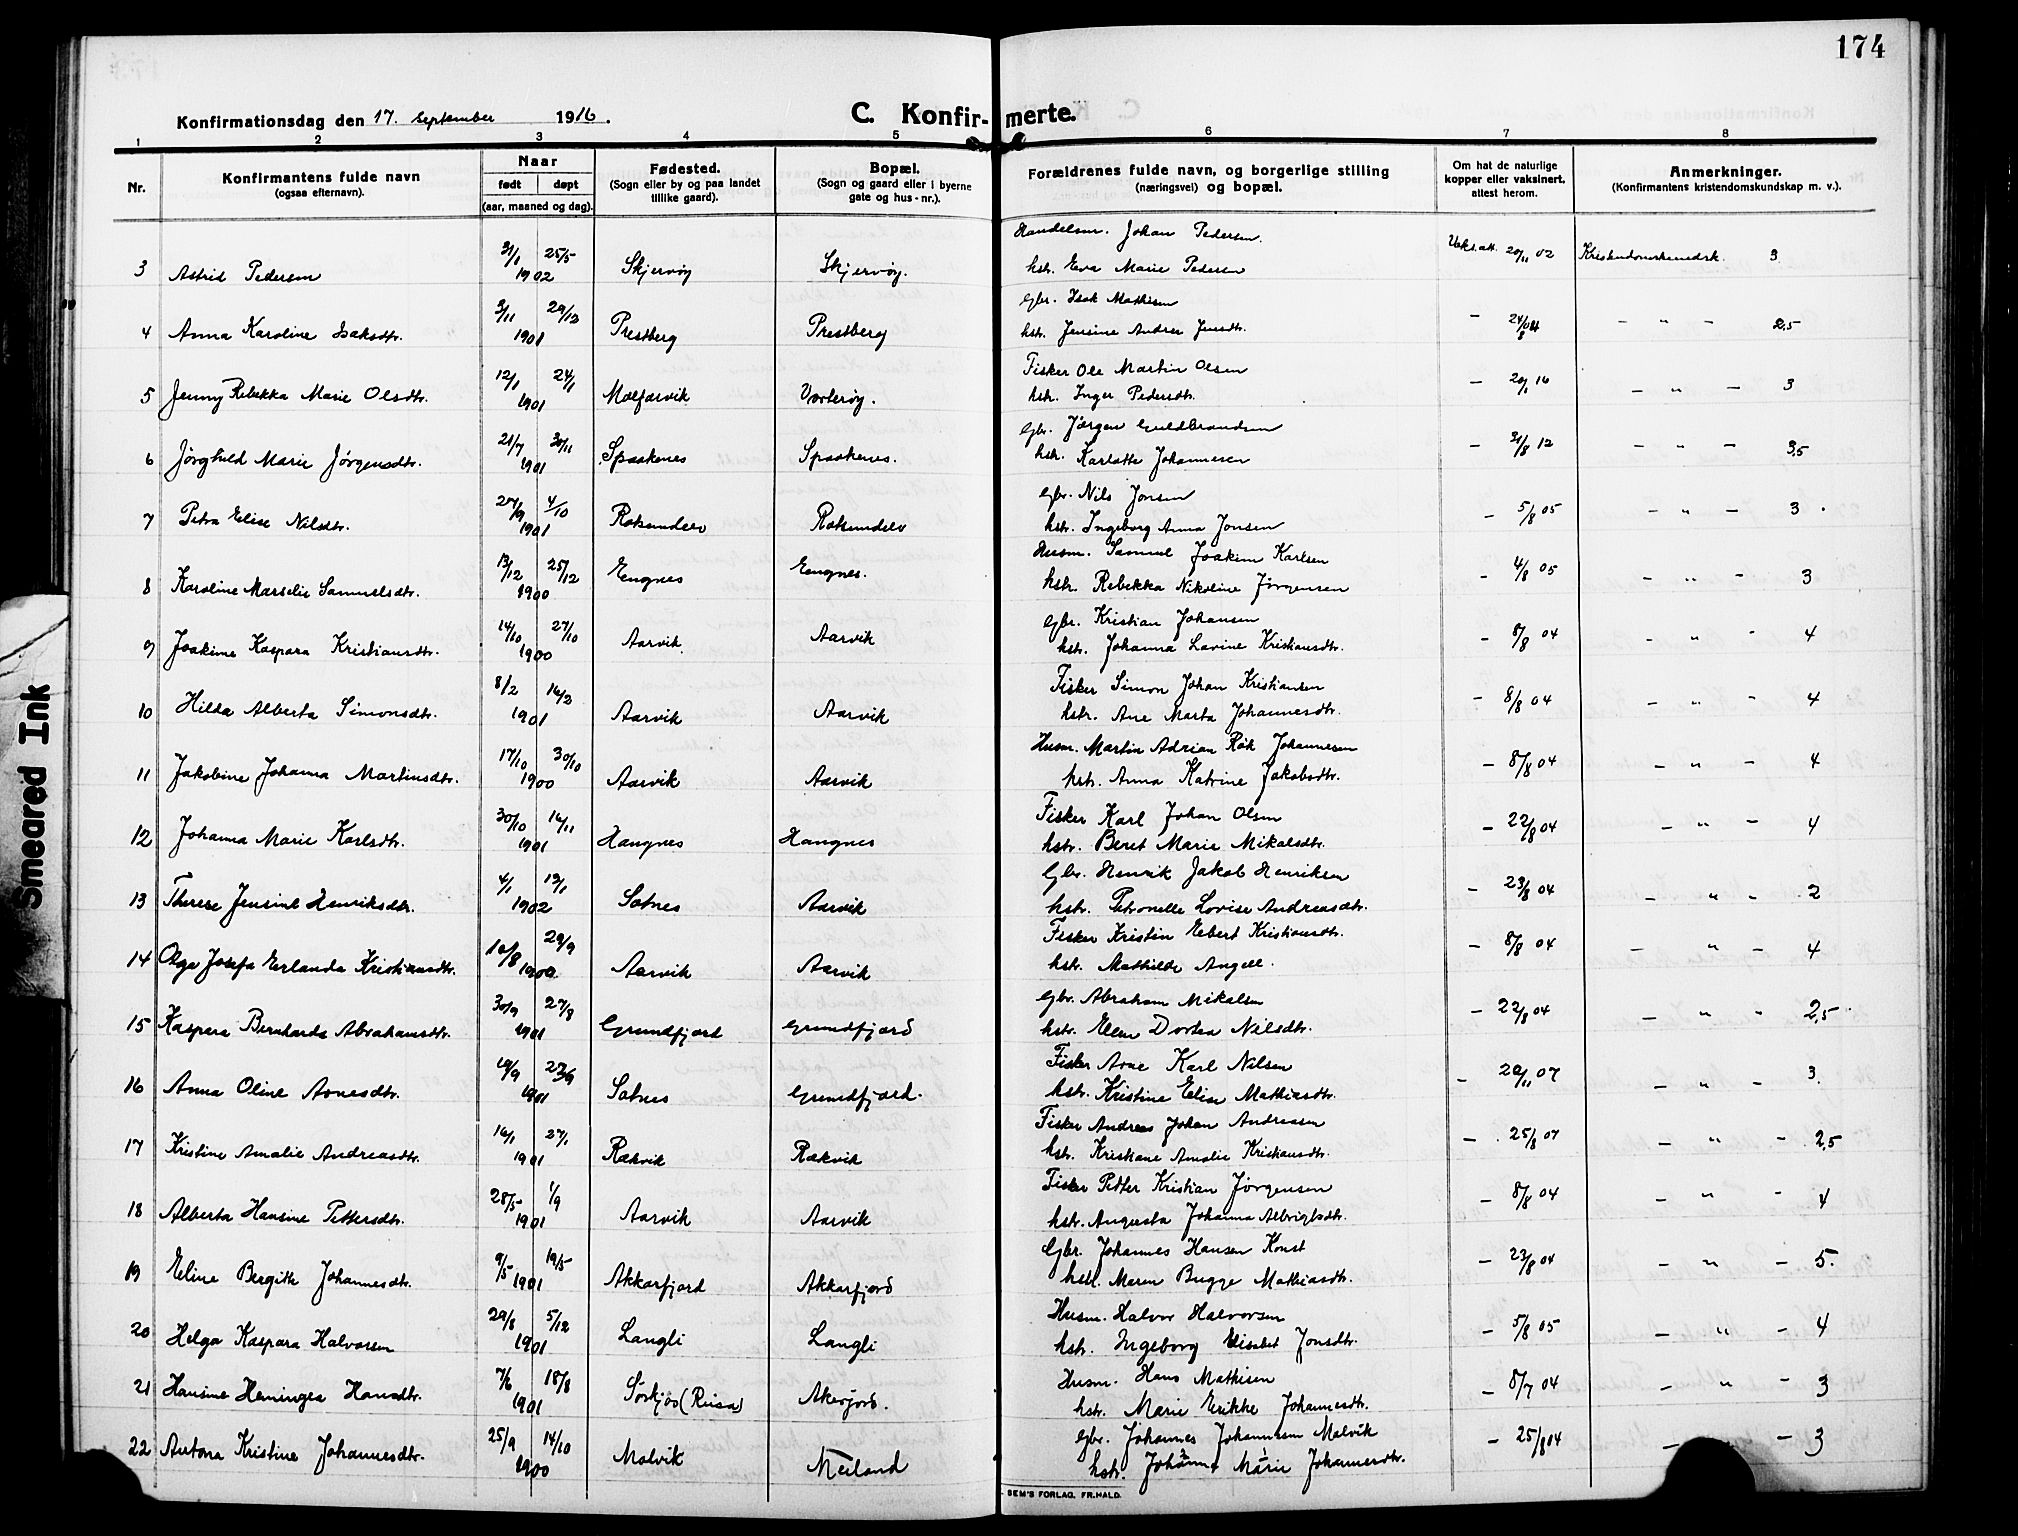 174
Konfirmationsdag den 17. September 1916.
C. Konfir- merte.
1 2 3 4 5 6 7 8
Nr.
Konfirmantens fulde navn
(ogsaa efternavn).
Naar
født døpt
(aar, maaned og dag).
Fødested.
(Sogn eller by og paa landet
tillike gaard).
Bopæl.
(Sogn og gaard eller i byerne
gate og hus-nr.).
Forældrenes fulde navn, og borgerlige stilling
(næringsvei) og bopæl.
Om hat de naturlige
kopper eller vaksinert,
attest herom.
Anmerkninger.
(Konfirmantens kristendomskundskap m. v.).
3 Astrid Pedersen 31/1 25/5 1902 Skjervøy Skjervøy. Handelsm. Johan Pedersen.
hstr. Eva Marie Pedersen Vaks.att. 20/11 02 3
4 Anna Karoline Isaksdtr. 3/11 29/12 1901 Prestberg Prestberg Gbr. Isak Mathisen
hstr. Jensine Andrea Jensdtr. — 24/8 04 — " — 2,5
5 Jenny Rebekka Marie Olsdtr. 12/1 24/1 1901 Maelfarvik Vorterøy. Fisker Ole Martin Olsen
hstr. Inger Pedersdtr. — 20/1 16 — " — 3
6 Jørghild Marie Jørgensdtr. 21/7 30/11 1901 Spaakenes Spaakenes. Gbr. Jørgen Guldbrandsen
hstr. Karlotte Johannesen — 31/8 12 — " — 3,5
7 Petra Elise Nilsdtr. 27/9 4/10 1901 Rotsundelv Rotsundelv Gbr. Nils Jonsen
hstr. Ingeborg Anna Jonsen — 5/8 05 — " — 3.
8 Karoline Marselie Samuelsdtr. 13/12 25/12 1900 Engnes Engnes. Husm. Samuel Joakim Karlsen
hstr. Rebekka Nikoline Jørgensen — 4/8 05 — " — 3
9 Joakime Kaspara Kristiansdtr. 14/10 27/10 1900 Aarvik Aarvik Gbr. Kristian Johansen
hstr. Johanna Lavine Kristiansdtr. — 8/8 04 — " — 4
10 Hilda Alberta Simonsdtr. 8/2 16/2 1901 Aarvik Aarvik Fisker Simon Johan Kristiansen
hstr. Ane Marta Johannesdtr. — 8/8 04 — " — 4
11 Jakobine Johanna Martinsdtr. 17/10 30/10 1900 Aarvik Aarvik Husm. Martin Adrian Røk Johannesen
hstr. Anna Katrine Jakobsdtr. — 8/8 04 — " — 4
12 Johanna Marie Karlsdtr. 30/10 16/11 1901 Hangnes Hangnes Fisker Karl Johan Olsen
hstr. Beret Marie Mikalsdtr. — 22/8 04 — " — 4
13 Therese Jensine Henriksdtr. 4/1 19/1 1902 Sotnes Aarvik Gbr. Henrik Jakob Henriksen
hstr. Petronelle Lovise Andreasdtr. — 23/8 04 — " — 2
14 Olga Josefa Erlanda Kristiansdtr. 10/8 29/9 1900 Aarvik Aarvik Fisker Kristin Ebert Kristiansdtr.
hstr. Mathilde Angell. — 8/8 04 — " — 4
15 Kaspara Bernharda Abrahamsdtr. 30/9 27/8 1901 Grundfjord Grundfjord Gbr. Abraham Mikalsen
hstr. Ellen Dortea Nilsdtr. — 22/8 04 — " — 2,5
16 Anna Oline Arnesdtr. 19/9 23/9 1901 Sotnes Grundfjord. Fisker Arne Karl Nilsen
hstr. Kristine Elise Mathiasdtr. — 20/11 07 — " — 3.
17 Kristine Amalie Andreasdtr. 16/1 27/1 1901 Rækvik Rækvik Fisker Andreas Johan Andreassen
hstr. Kristiane Amalie Kristiansdtr. — 25/8 07 — " — 2,5
18 Alberta Hansine Pettersdtr. 28/5 1/9 1901 Aarvik Aarvik Fisker Petter Kristian Jørgensen
hstr. Augusta Johanna Albrigtsdtr. — 8/8 04 — " — 4
19 Eline Bergitte Johannesdtr. 9/5 19/5 1901 Akkarfjord Akkarfjord Gbr. Johannes Hansen Konst
hstr. Maren Bugge Mathiasdtr. — 23/8 04 — " — 5.
20 Helga Kaspara Halvorsen 29/8 5/12 1901 Langli Langli Husm. Halvor Halvorsen
hstr. Ingeborg Elisabet Jonsdtr. — 5/8 05 — " — 4
21 Hansine Henninge Hansdtr. 7/6 18/8 1901 Sørkjos (Reisa) Akerfjord. Husm. Hans Mathisen
hstr. Marie Erikke Johannesdtr. — 8/7 04 — " — 3
22 Antona Kristine Johannesdtr. 25/9 14/10 1900 Malvik Meiland Gbr. Johannes Johannesen Malvik
hstr. Johanna Marie Johannesdtr. — 25/8 04 — " — 3
SEM'S FORLAG, FR.HALD.
Smeared Ink